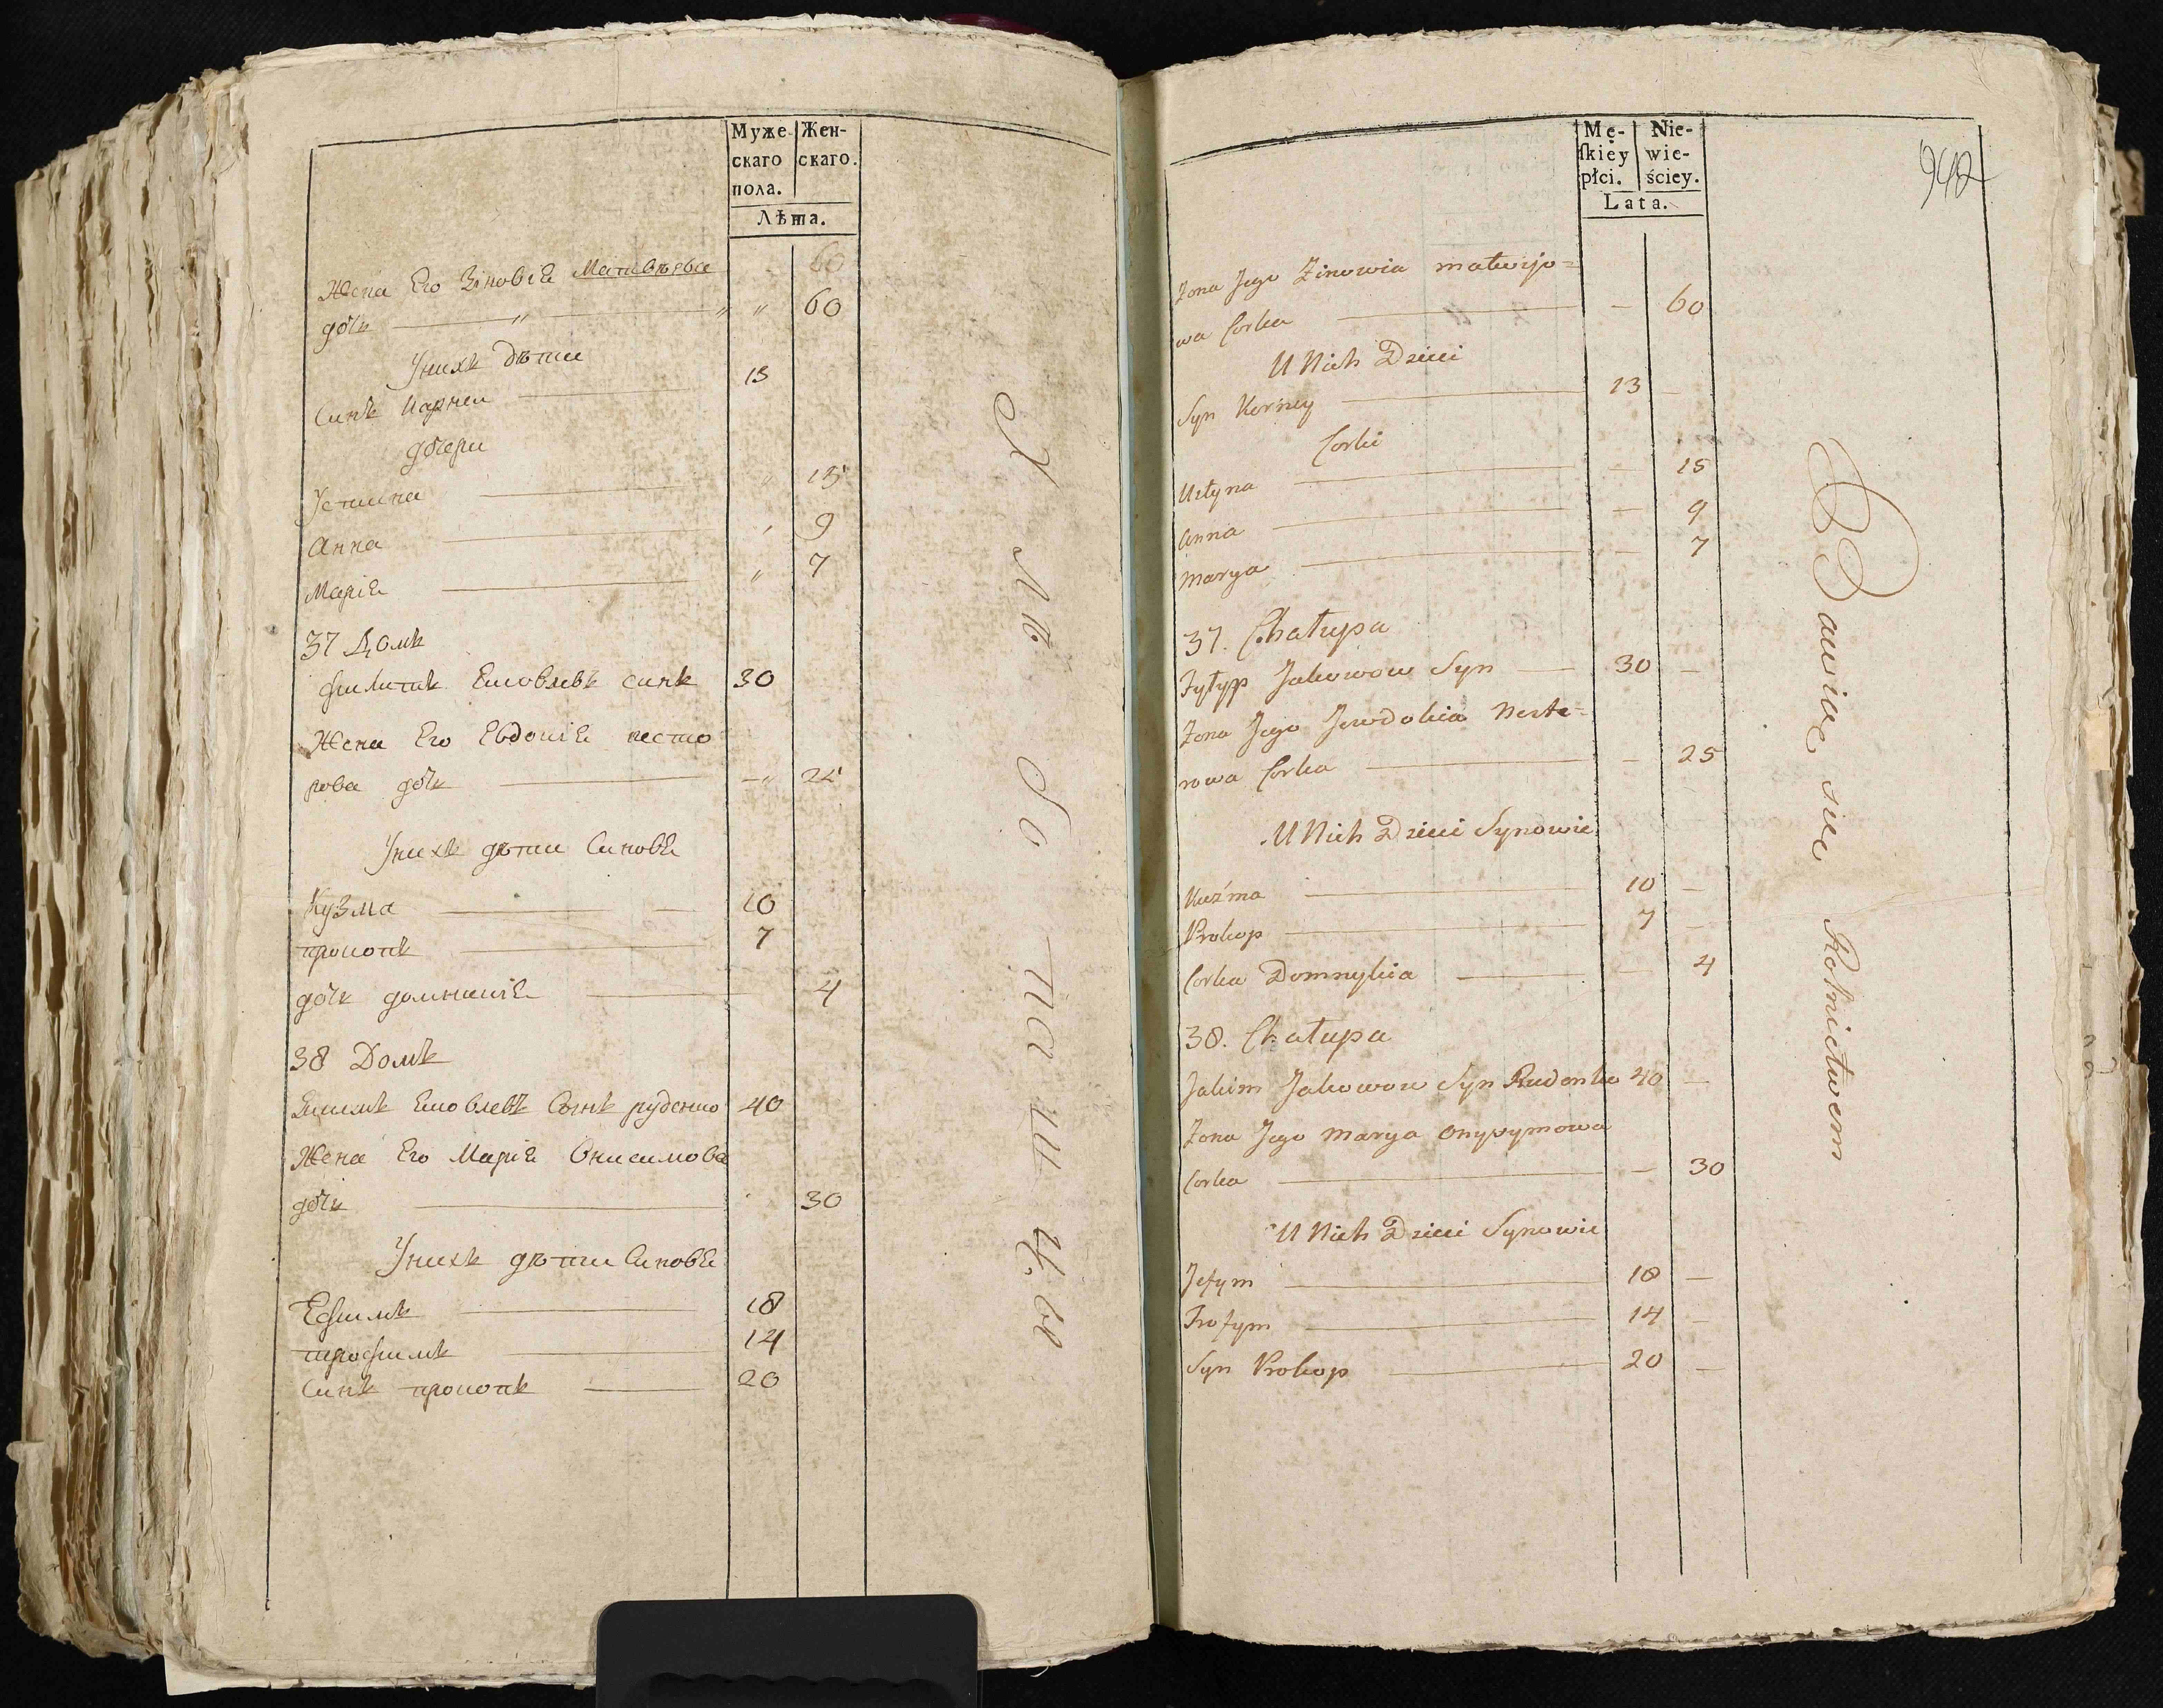 Муже-
скаго
пола.
Жен-
скаго.
Лѣта.
Жена Его Зіновіѣ Матвѣева 60
дочь — „ — „ „ 60
Унихъ дѣти
Синъ Карней — 13
дочери
Устина — „ 15
Анна — „ 9
Маріѣ — „ 7
37 Домъ
филипъ Ековлевъ синъ 30
Жена Его Евдокіѣ несто
рова дочь — „ 25
Унихъ дѣти Синовѣ
Кузма — 10
прокопъ — 7
дочь домникіѣ — 4
38 Домъ
Екимъ Ековлевъ Сынъ руденко 40
Жена Его Маріѣ Онисимова
дочь — 30
Унихъ дѣти Синовѣ
Ефимъ — 18
трофимъ — 14
Синъ прокопъ — 20
Mę-
ſkiey
płci.
Nie-
wie-
ściey.
Lata.
942
Żona Jego Zinowia matwijo=
wa Corka — — 60
U Nich Dzieci
Syn Korney — 13 —
Corki
Ustyna — — 15
Anna — — 9
Marya — — 7
37. Chałupa
Fyłyp Jakowow Syn — 30 —
Żona Jego Jewdokia Neste=
rowa Corka — — 25
U Nich Dzieci Synowie
Kuźma — 10 —
Prokop — 7 —
Corka Domnykia — — 4
38. Chałupa
Jakim Jakowow Syn Rudenko 40 —
Żona Jego Marya Onysymowa
Corka — — 30
U Nich Dzieci Synowie
Jefym — 18 —
Trofym — 14 —
Syn Prokop — 20 —
Bawiąc się Rolnictwem